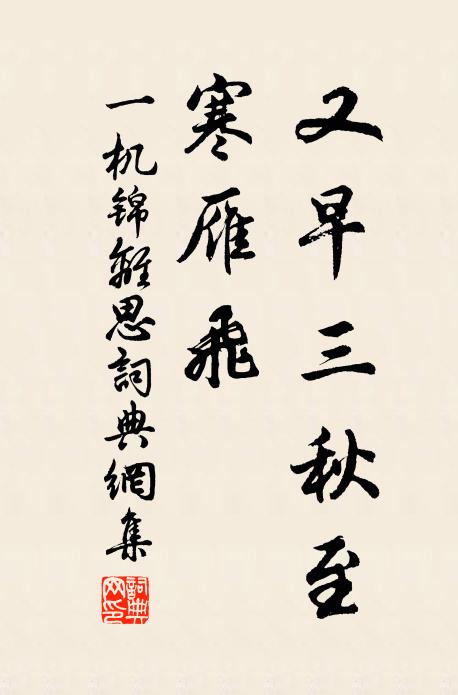 又早三秋至
寒雁飛
一机锦離思詞典網集
詞典网印